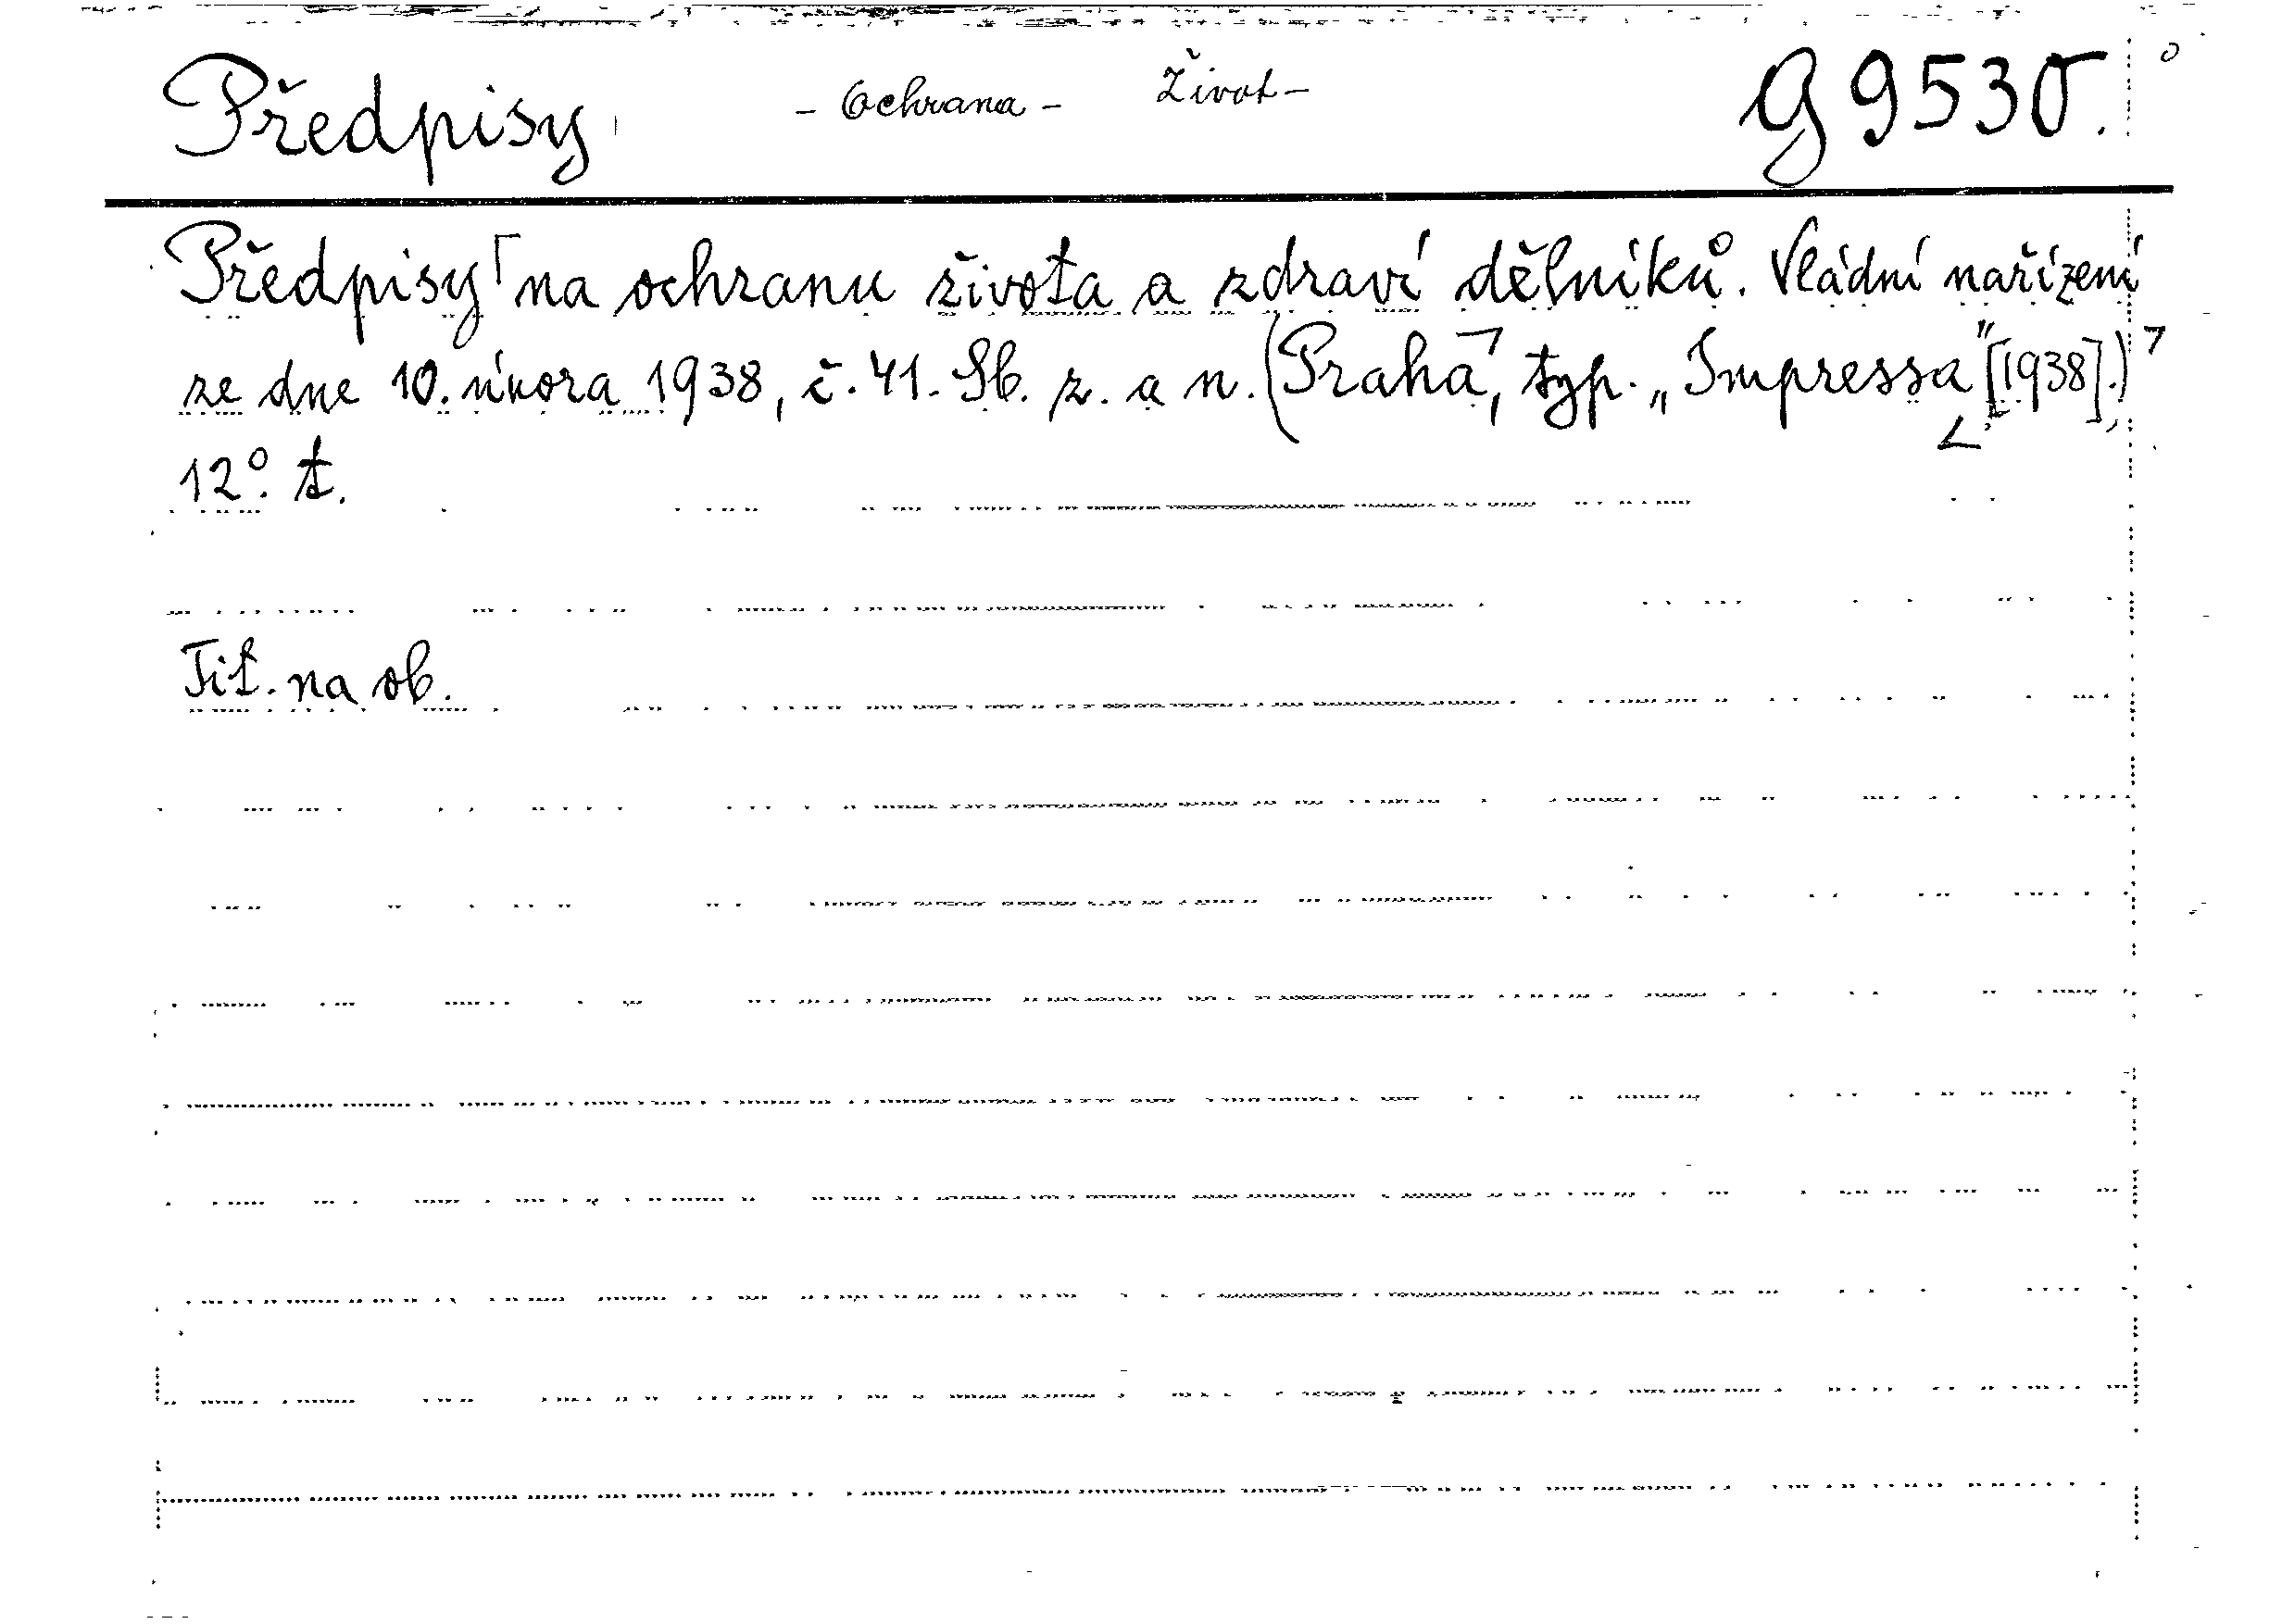 Předpisy - Ochrana - Život - G 9530.
Předpisy na ochranu života a zdraví dělníků. Vládní nařízení
ze dne 10. února 1938, č. 41. Sb. z. a n. (Praha, typ. „Impressa" [1938].)
12°. t.
Tit. na ob.